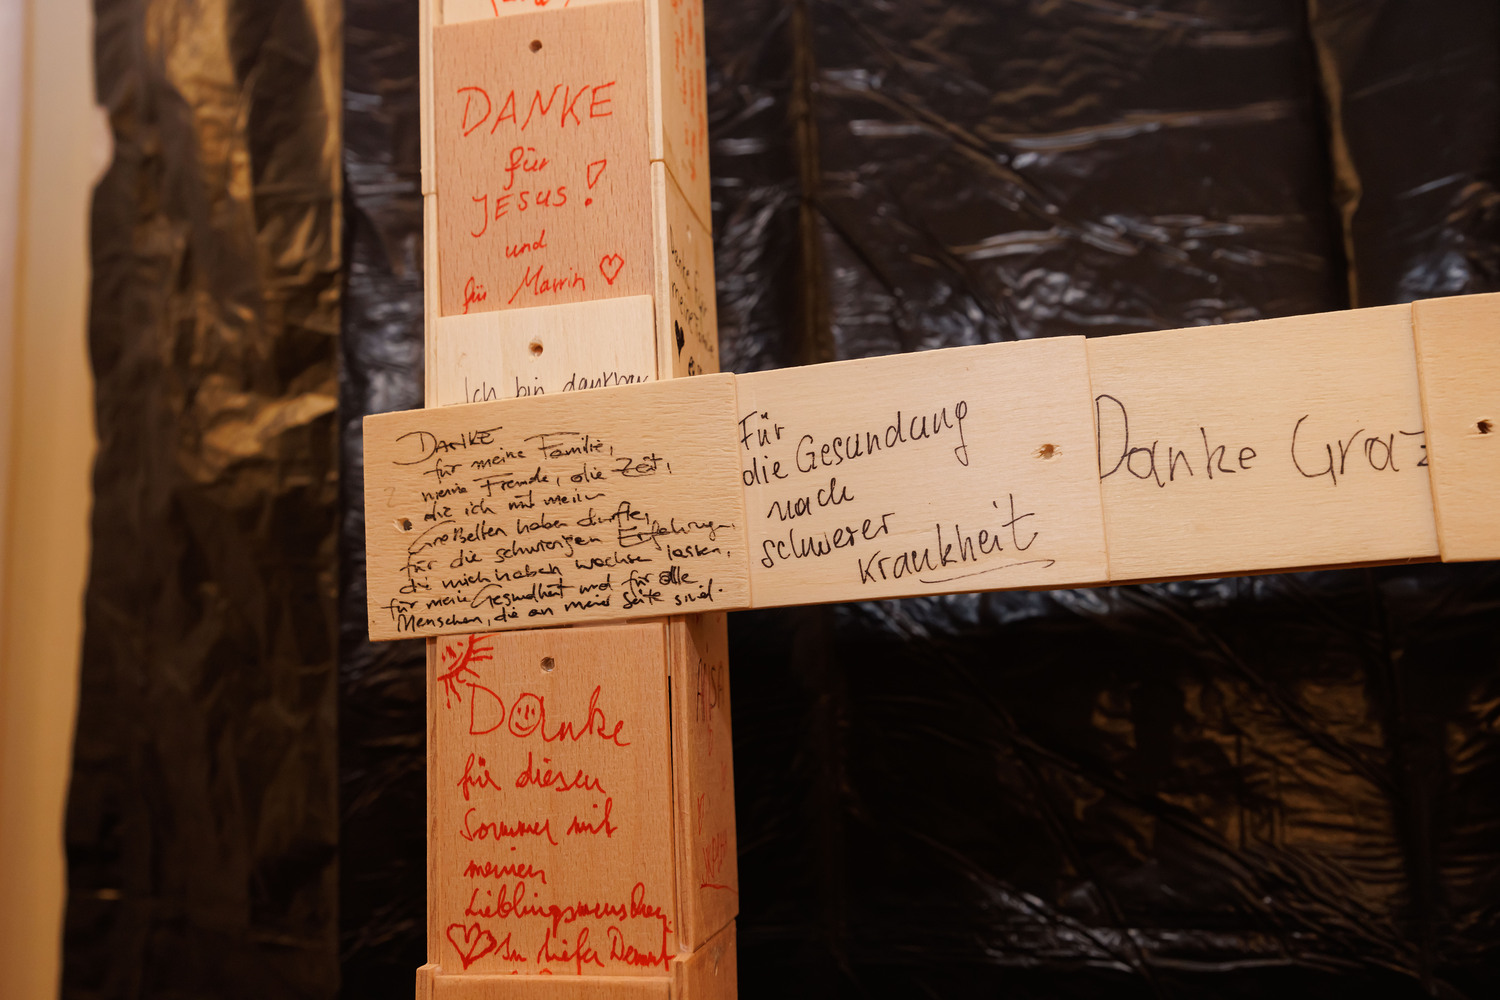 DANKE
für
JESUS!
und
für
Ich bin dankbar
DANKE
für meine Familie,
meine Freunde, die Zeit,
die ich mit meinen
Großeltern haben durfte,
für die schwierigen Erfahrungen,
die mich haben wachsen lassen,
für meine Gesundheit und für alle
Menschen, die an meiner Seite sind.
Für
die Gesundung
nach
schwerer
Krankheit
Danke Graz
Danke
für diesen
Sommer mit
meinen
Lieblingsmenschen
In tiefer Demut
Danke für
meine Familie